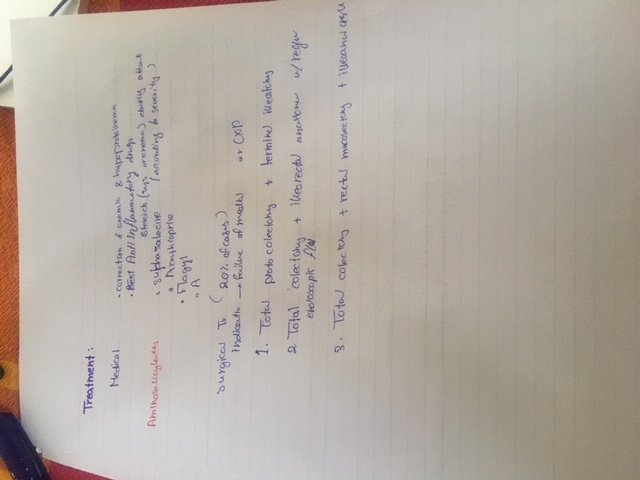 Treatment:
Medical
• correction of anemia & hypoproteinemia
• Best Anti inflammatory drugs
steroids (sys or enema) during attack
(according to severity)
Aminosalicylates
• sulphasalazine
• Azathioprine
• Flagyl
• A
Surgical Tr (20% of cases)
→ failure of or CXP
1. Total procto colectomy + terminal
2. Total colectomy + ileorectal w/ regu
endoscopic
3. Total colectomy + rectal mucosectomy +